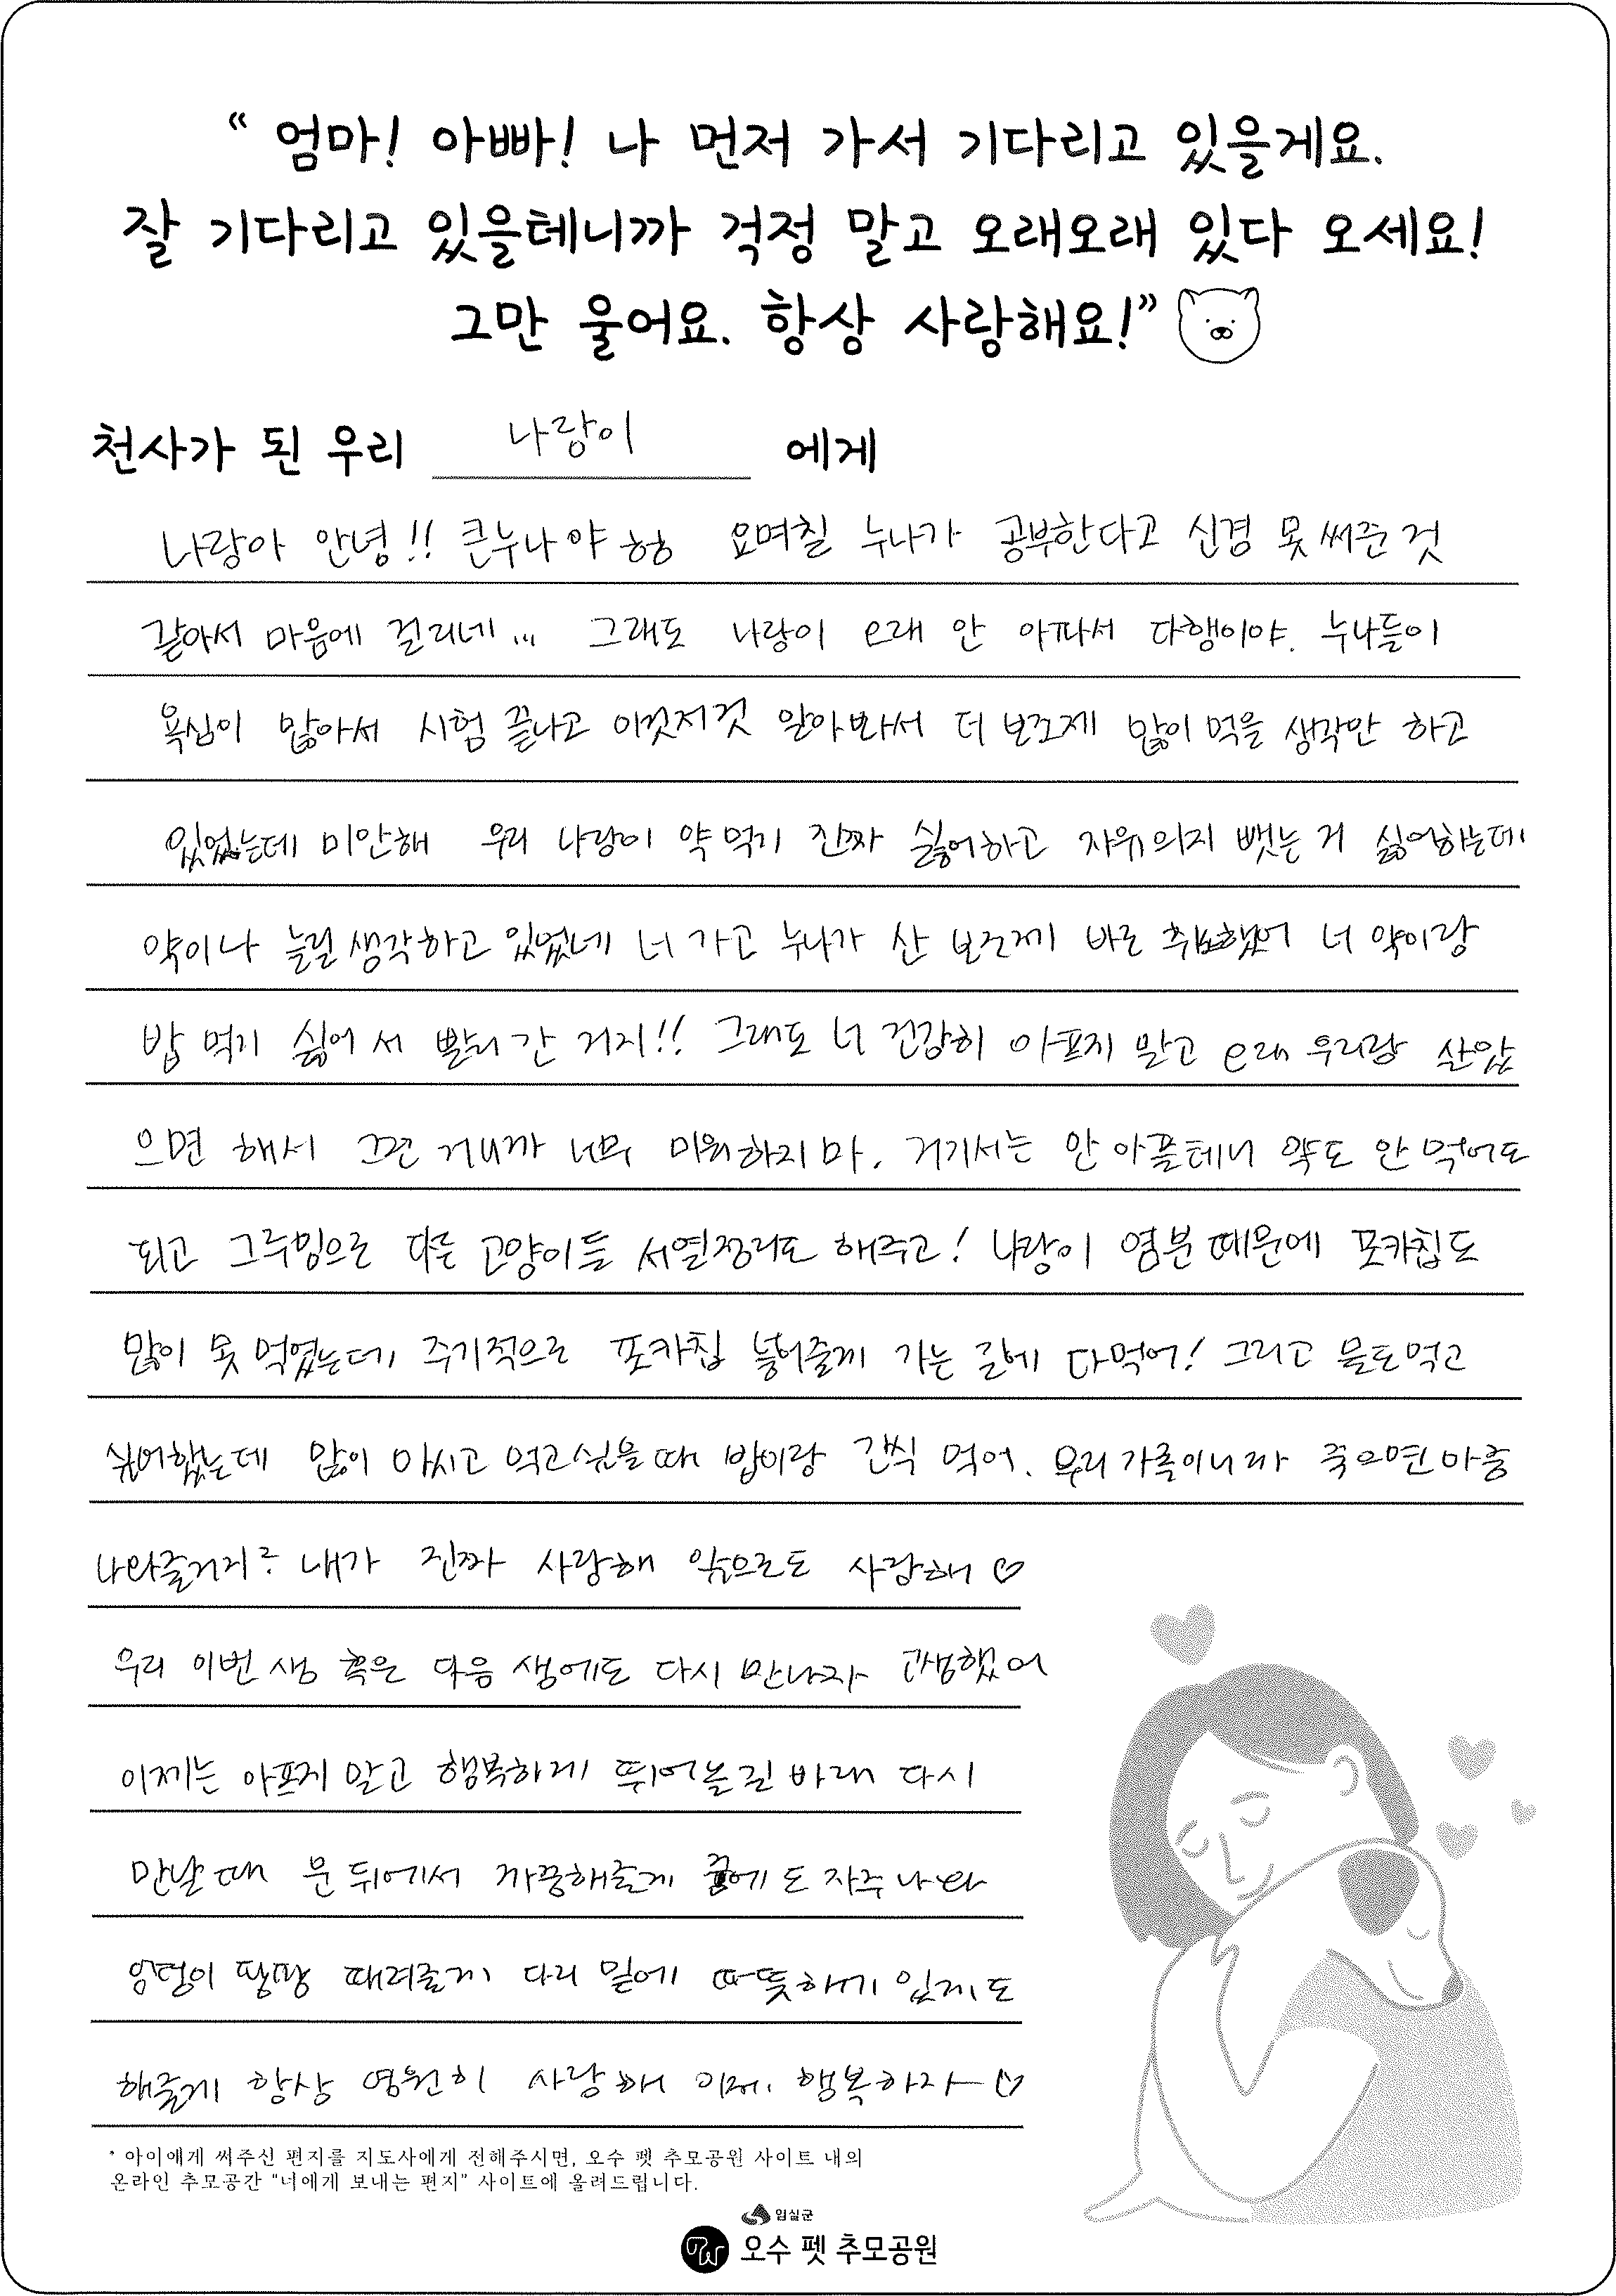 “ 엄마! 아빠! 나 먼저 가서 기다리고 있을게요.
잘 기다리고 있을테니까 걱정 말고 오래오래 있다 오세요!
그만 울어요. 항상 사랑해요!”
천사가 된 우리 나랑이 에게
나랑아 안녕!! 큰누나야 ㅎㅎ 요며칠 누나가 공부한다고 신경 못 써준 것
같아서 마음에 걸리네... 그래도 나랑이 오래 안 아파서 다행이야. 누나들이
욕심이 많아서 시험 끝나고 이것저것 알아봐서 더 보조제 많이 먹을 생각만 하고
있었는데 미안해 우리 나랑이 약 먹기 진짜 싫어하고 자유의지 뺏는 거 싫어하는데
약이나 늘릴 생각하고 있었네 너 가고 누나가 산 보조제 바로 취소했어 너 약이랑
밥 먹기 싫어서 빨리 간 거지!! 그래도 너 건강히 아프지 말고 오래 우리랑 살았
으면 해서 그런 거니까 너무 미워하지마. 거기서는 안 아플테니 약도 안 먹어도
되고 그루밍으로 다른 고양이들 서열정리도 해주고! 나랑이 염분 때문에 포카칩도
많이 못 먹었는데 주기적으로 포카칩 놓아줄게 가는 길에 다먹어! 그리고 물도먹고
싶어했는데 많이 마시고 먹고싶을때 밥이랑 간식 먹어. 우리 가족이니까 죽으면 마중
나와줄거지? 내가 진짜 사랑해 앞으로도 사랑해 ♡
우리 이번 생 혹은 다음 생에도 다시 만나자 고생했어
이제는 아프지 말고 행복하게 뛰어놀길 바래 다시
만날 때 문 뒤에서 까꿍해줄게 꿈에도 자주 나와
엉덩이 팡팡 때려줄게 다리 밑에 따뜻하게 있게도
해줄게 항상 영원히 사랑해 이제 행복하자 ♡
* 아이에게 써주신 편지를 지도사에게 전해주시면, 오수 펫 추모공원 사이트 내의
온라인 추모공간 “너에게 보내는 편지” 사이트에 올려드립니다.
임실군
오수 펫 추모공원